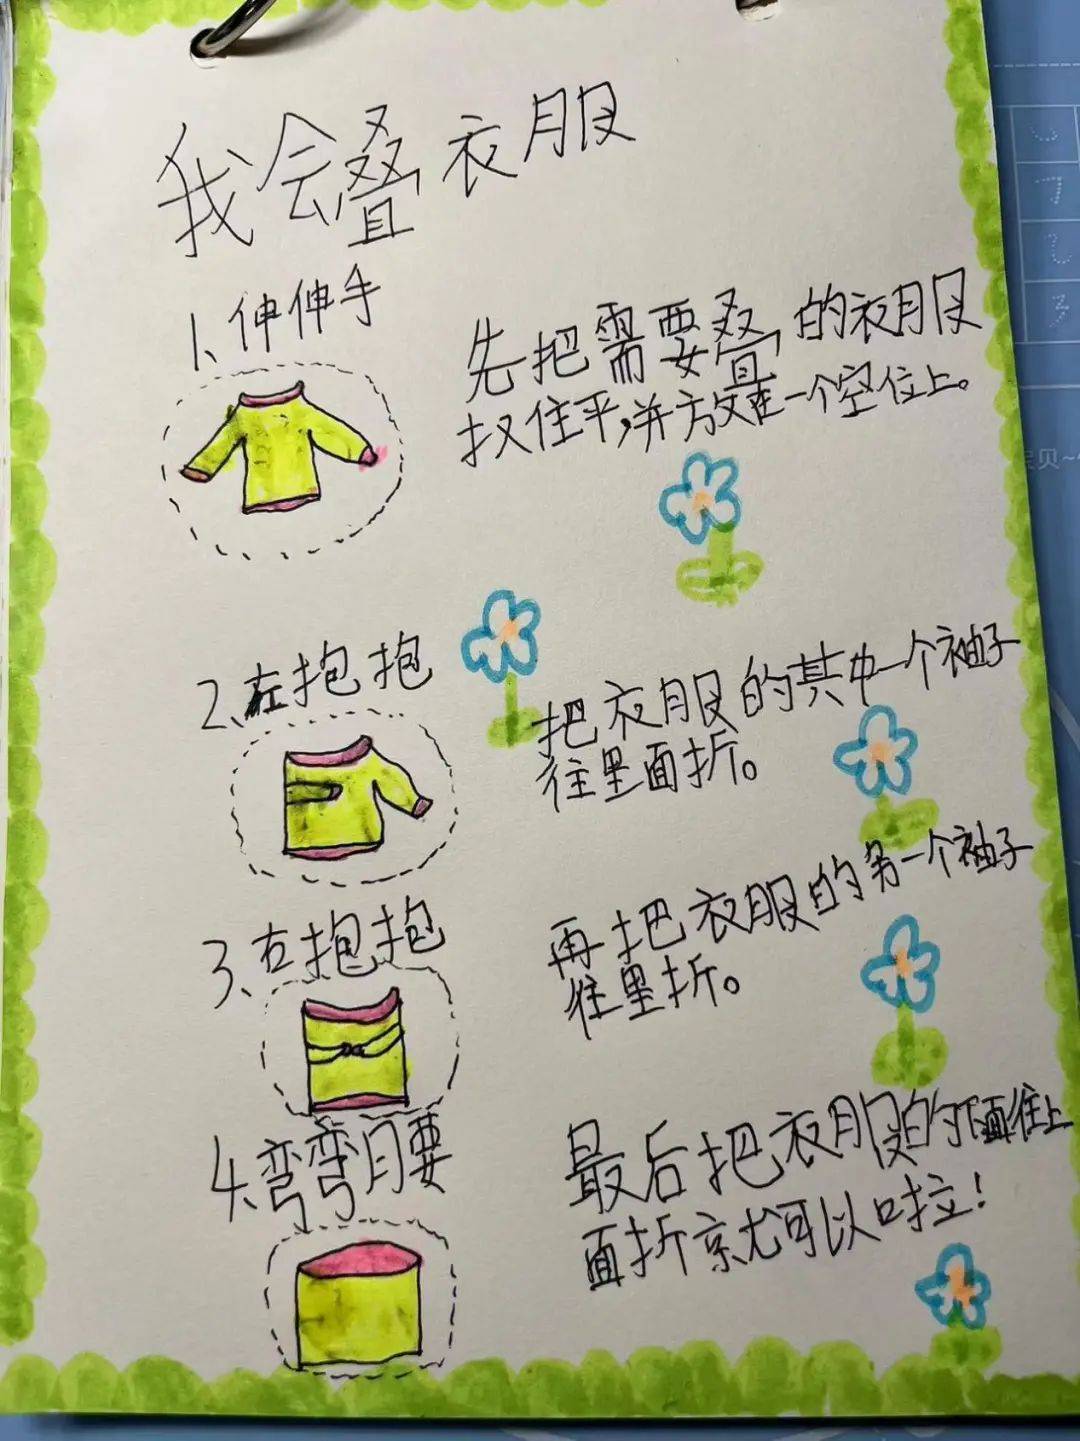 我会叠衣服
1、伸伸手
先把需要叠的衣服
扠住平,并放在一个空位上。
2、左抱抱
把衣服的其中一个袖子
往里面折。
3、右抱抱
再把衣服的另一个袖子
往里折。
4、弯弯腰
最后把衣服的下面往上
面折就可以啦!